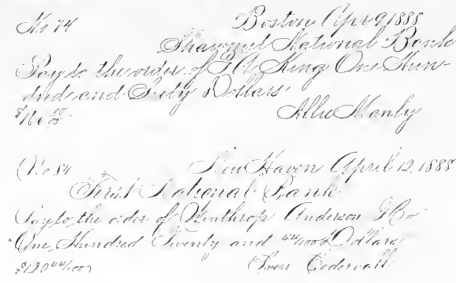 No 74 Boston Apr 9 1888
Shawmut National Bank
Pay to the order of King One Hun
dred and Sixty Dollars
Allie Manly
No 84 New Haven April 12, 1888
First National Bank
Pay to the order of Winthrop Anderson & Co
One Hundred Twenty and 44/100 Dollars
$120 44/100 Sven Cedervall